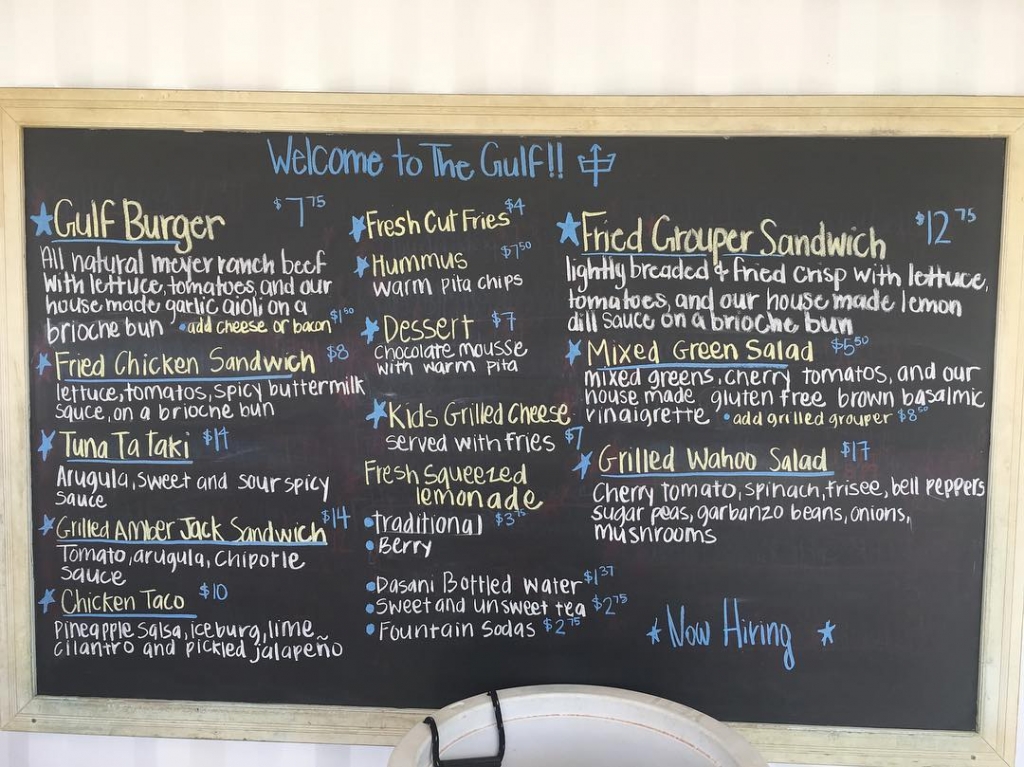 Welcome to The Gulf!!
Gulf Burger $7.75
All natural meyer ranch beef
with lettuce, tomatoes, and our
house made garlic aioli, on a
brioche bun • add cheese or bacon $1.50
Fried Chicken Sandwich $8
lettuce, tomatos, spicy buttermilk
sauce, on a brioche bun
Tuna Ta taki $14
Arugula, sweet and sour spicy
sauce
Grilled Amber Jack Sandwich $14
Tomato, arugula, Chipotle
sauce
Chicken Taco $10
Pineapple salsa, iceburg, lime
cilantro and pickled jalapeño
Fresh Cut Fries $4
Hummus $7.50
warm pita chips
Dessert $7
Chocolate mousse
with warm pita
Kids Grilled Cheese
served with fries $7
Fresh Squeezed
lemonade
• traditional $3.75
• Berry
• Dasani Bottled water $1.37
• Sweet and unsweet tea $2.75
• Fountain Sodas $2.75
Fried Grouper Sandwich $12.75
lightly breaded & fried crisp with lettuce,
tomatoes, and our house made lemon
dill sauce on a brioche bun
Mixed Green Salad $5.50
mixed greens, cherry tomatos, and our
house made gluten free brown basalmic
vinaigrette • add grilled grouper $8.50
Grilled Wahoo Salad $17
Cherry tomato, spinach, frisee, bell peppers
sugar peas, garbanzo beans, onions,
mushrooms
Now Hiring